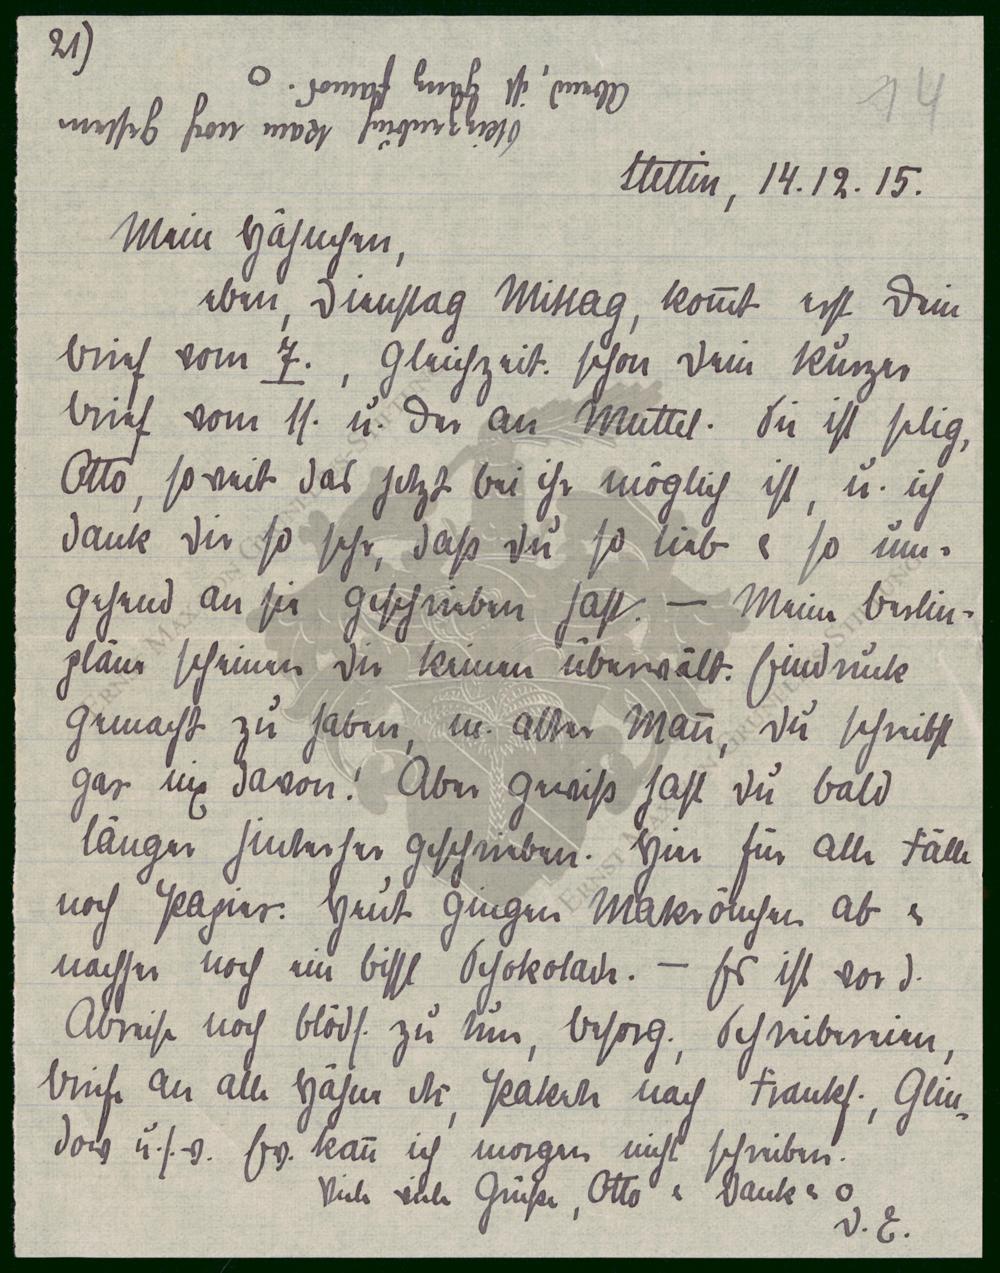 21)
14
Skizzenbuch kam noch gestern
Abend, ist ganz famos. O
Stettin, 14.12.15.
Mein Hähnchen,
eben, Dienstag Mittag, kom̄t erst Dein
Brief vom 7., gleichzeit. schon Dein kurzer
Brief vom 11. u. der an Muttel. Sie ist selig,
Otto, soweit das jetzt bei ihr möglich ist, u. ich
dank dir so sehr, daß du so lieb & so um-
gehend an sie geschrieben hast. — Meine Berlin-
pläne scheinen dir keinen überwält. Eindruck
gemacht zu haben, m. alter Man̄, du schreibst
gar nix davon! Aber gewiß hast du bald
länger hinterher geschrieben. Hier für alle Fälle
noch Papier. Heut gingen Makrönchen ab &
nachher noch ein bissl Schokolade. — Es ist vor d.
Abreise noch blöds. zu tun, Besorg., Schreibereien,
Briefe an alle Hähne etc, Pakete nach Frankf., Glin-
dow u.s.w. Ev. kan̄ ich morgen nicht schreiben.
Viele viele Grüße, Otto & Dank & O
D. E.
ERNST MAX VON GRUNELIUS-STIFTUNG
ERNST MAX VON GRUNELIUS-STIFTUNG